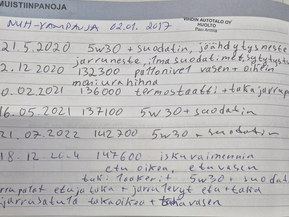 MUISTIINPANOJA
HIN AUTOTALO OY
HUOLTO
02.01. 2017
21.5.2020 5w30 + suodatin, jäähdytysneste
jarruneste, ilmasuodatin, sytytyst
2.12.2020 132300 pallonivel vasen + oikea
0.02.2021 136000 termostaatti + takajarrup
16.05.2021 137100 5w30 + suodatin
21.07.2022 142700 5w30 - suodatin
18.12. 147600 iskunvaimennin
etu oikea, etuvasen
5w30 + suodat
+ jarrulevyt etu + taka
jarrusatula takaoikea + vasen